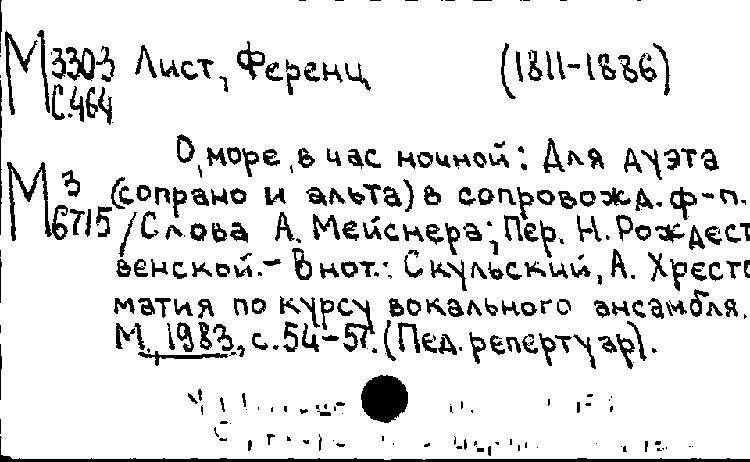 М 3303 Лист, Ференц (1811-1886)
С.464
О, море, в час ночной: Для дуэта
М 3 (сопрано и альта) в сопровожд. ф-п.
6715 /Слова А. Мейснера; Пер. Н. Рождест
венской.- В нот.: Скульский, А. Хресто
матия по курсу вокального ансамбля.
М., 1983, с.54-57. (Пед. репертуар).